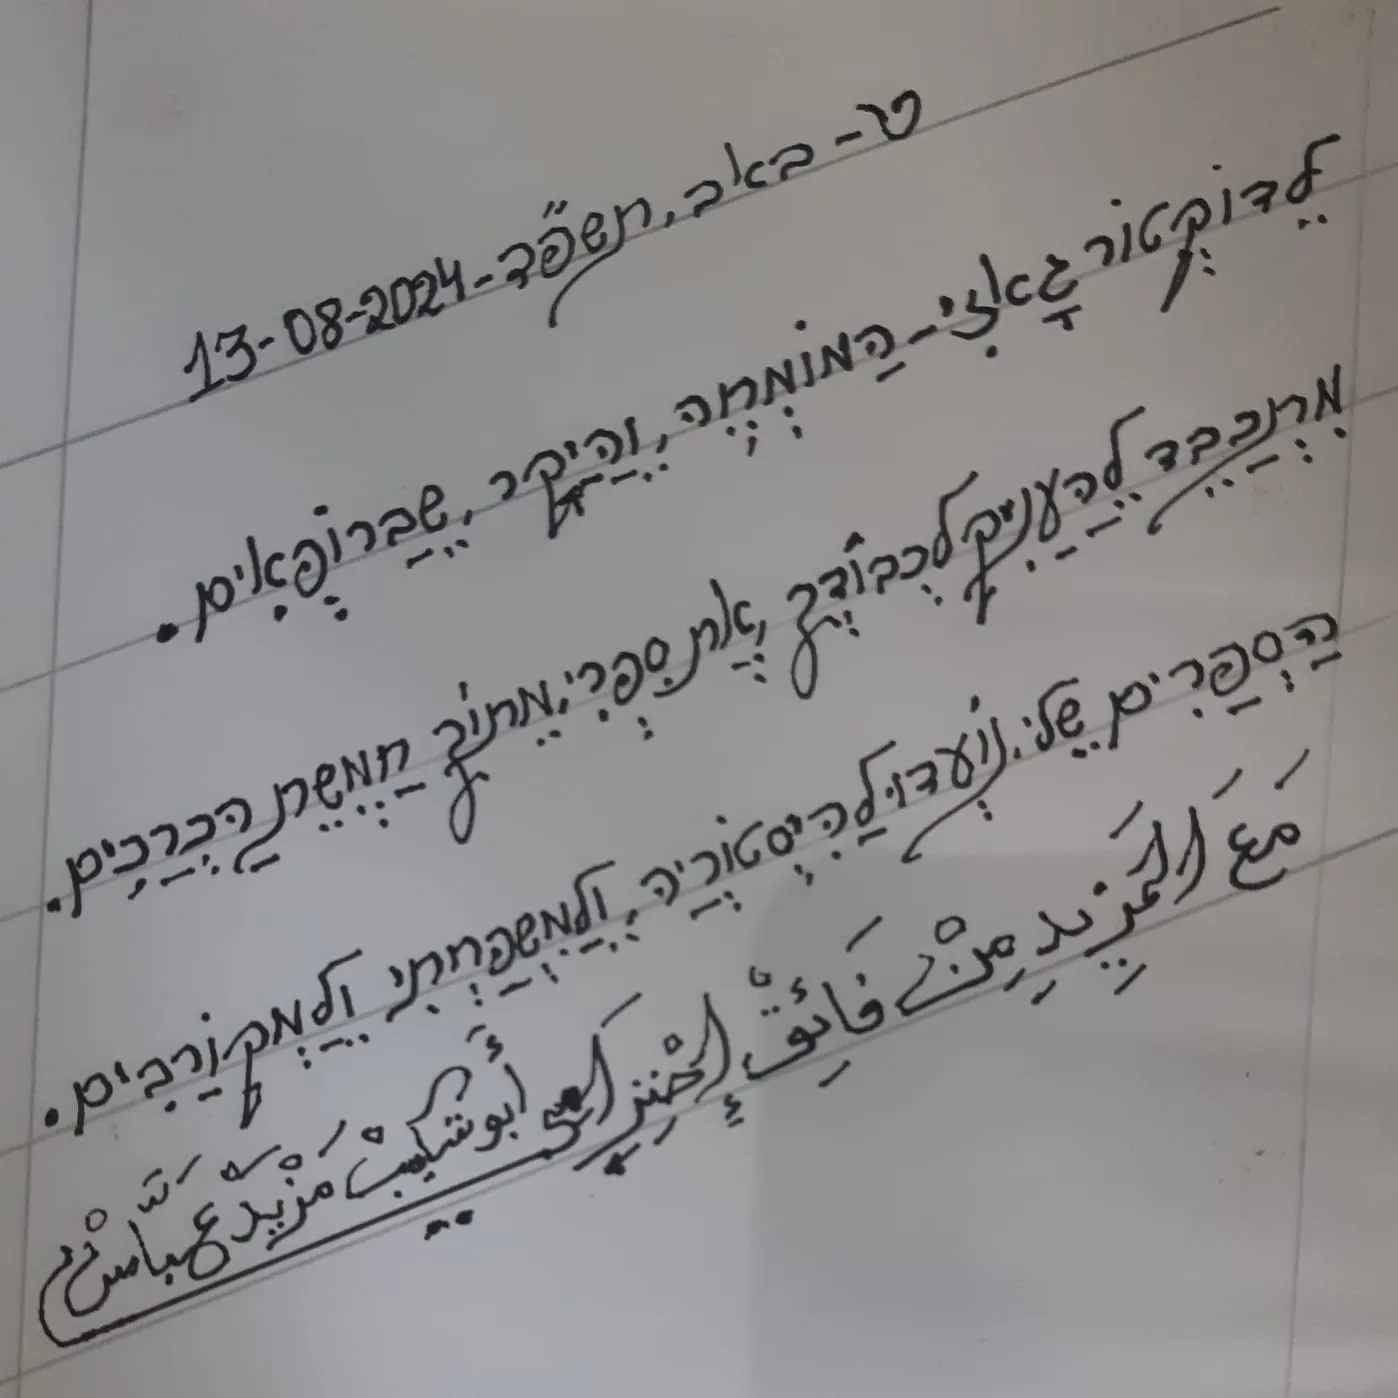 ט- באב, תשפ"ד-13-08-2024
לֵדוֹקְטוֹר גָאזִי-הַמוּמְחֶה, וֵהַיָקָר, שֶבַרוֹפְאִים.
מִתְכַּבֵּד לֵהַעֲנִיק לִכְבוֹדְךָ, אֶת סִפְרִי, מֵתוֹךְ חֲמֵשֶת הַכְּרַכִים.
הַסְפַרִים שֵלִי, נוֹעֲדוּ לַהִיסְטוֹרְיַה, וֵלַמִשְפַּחְתִי וֵלַמְקוֹרַבִים.
مَعَ اَلْمَزِيدِ مِنْ فَائِقِ إِحْتِرَامِي أَبُو شَكِيبْ مَزْيَدْ عَبَّاسْ